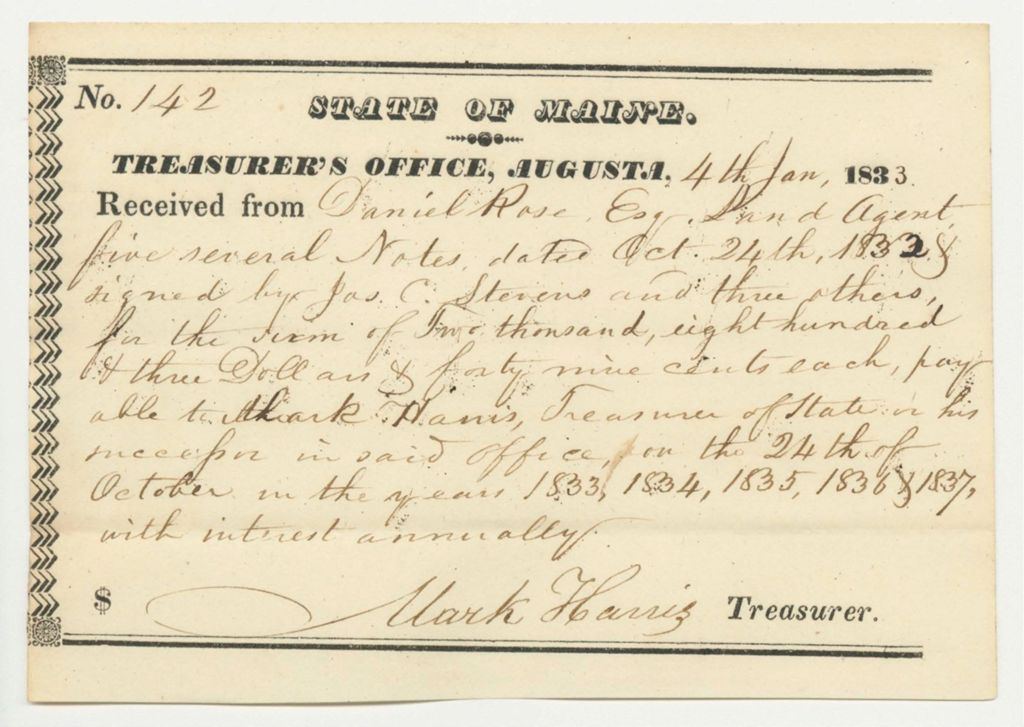 No. 142
STATE OF MAINE.
TREASURER'S OFFICE, AUGUSTA, 4th Jan, 1833.
Received from Daniel Rose, Esq. Land Agent
five several Notes, dated Oct. 24th, 1832 &
signed by Jas. C. Stevens and three others,
for the sum of Two thousand, eight hundred
& three Dollars & forty nine cents each, pay
able to Mark Harris, Treasurer of State or his
successor in said office, on the 24th of
October in the years 1833, 1834, 1835, 1836 & 1837,
with interest annually.
$ Mark Harris Treasurer.